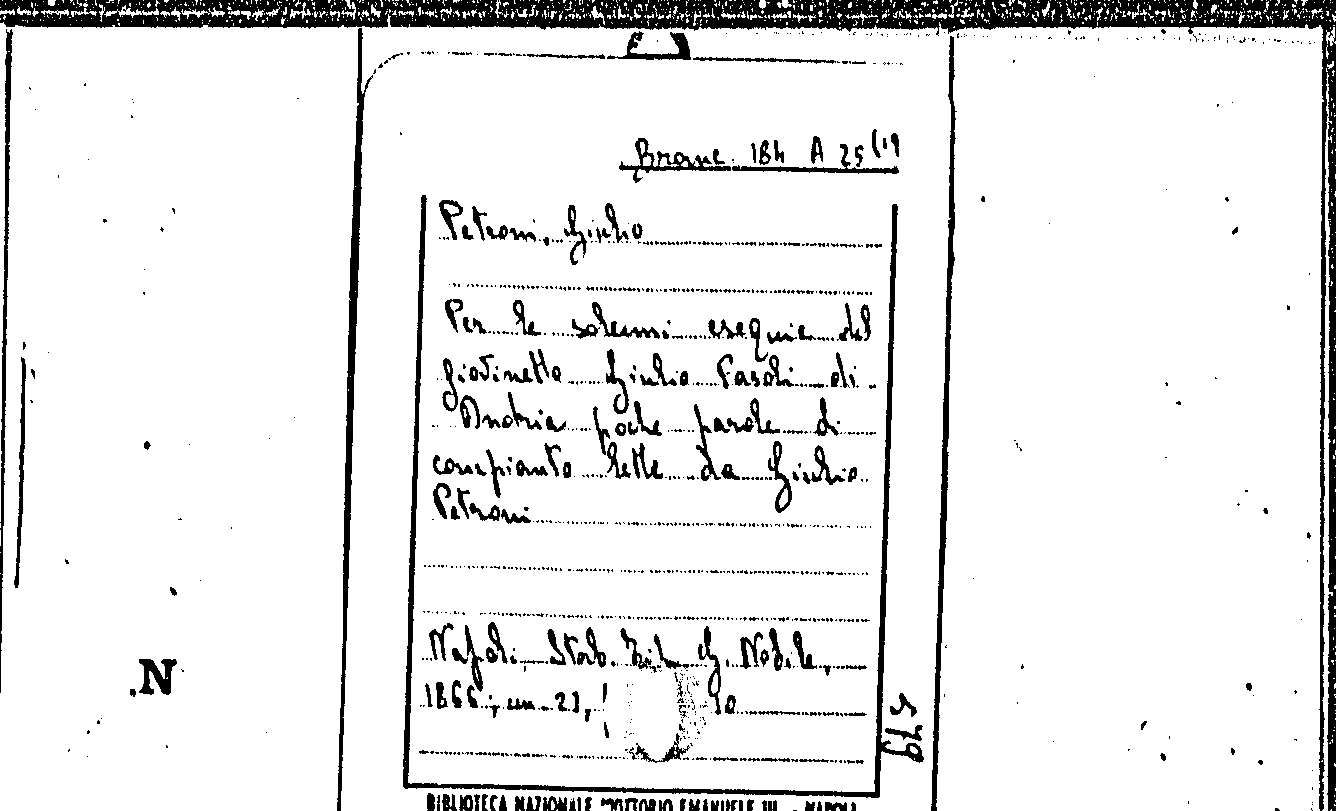 Branc. 184 A 25 (19
Petroni, Giulio
Per le solenni esequie del
giovinetto Giulio Fasoli di
Andria poche parole di
compianto lette da Giulio
Petroni
Napoli, Stab. Tip. G. Nobile,
1866; cm. 23, 10
579
.N
BIBLIOTECA NAZIONALE "VITTORIO EMANUELE III" - NAPOLI